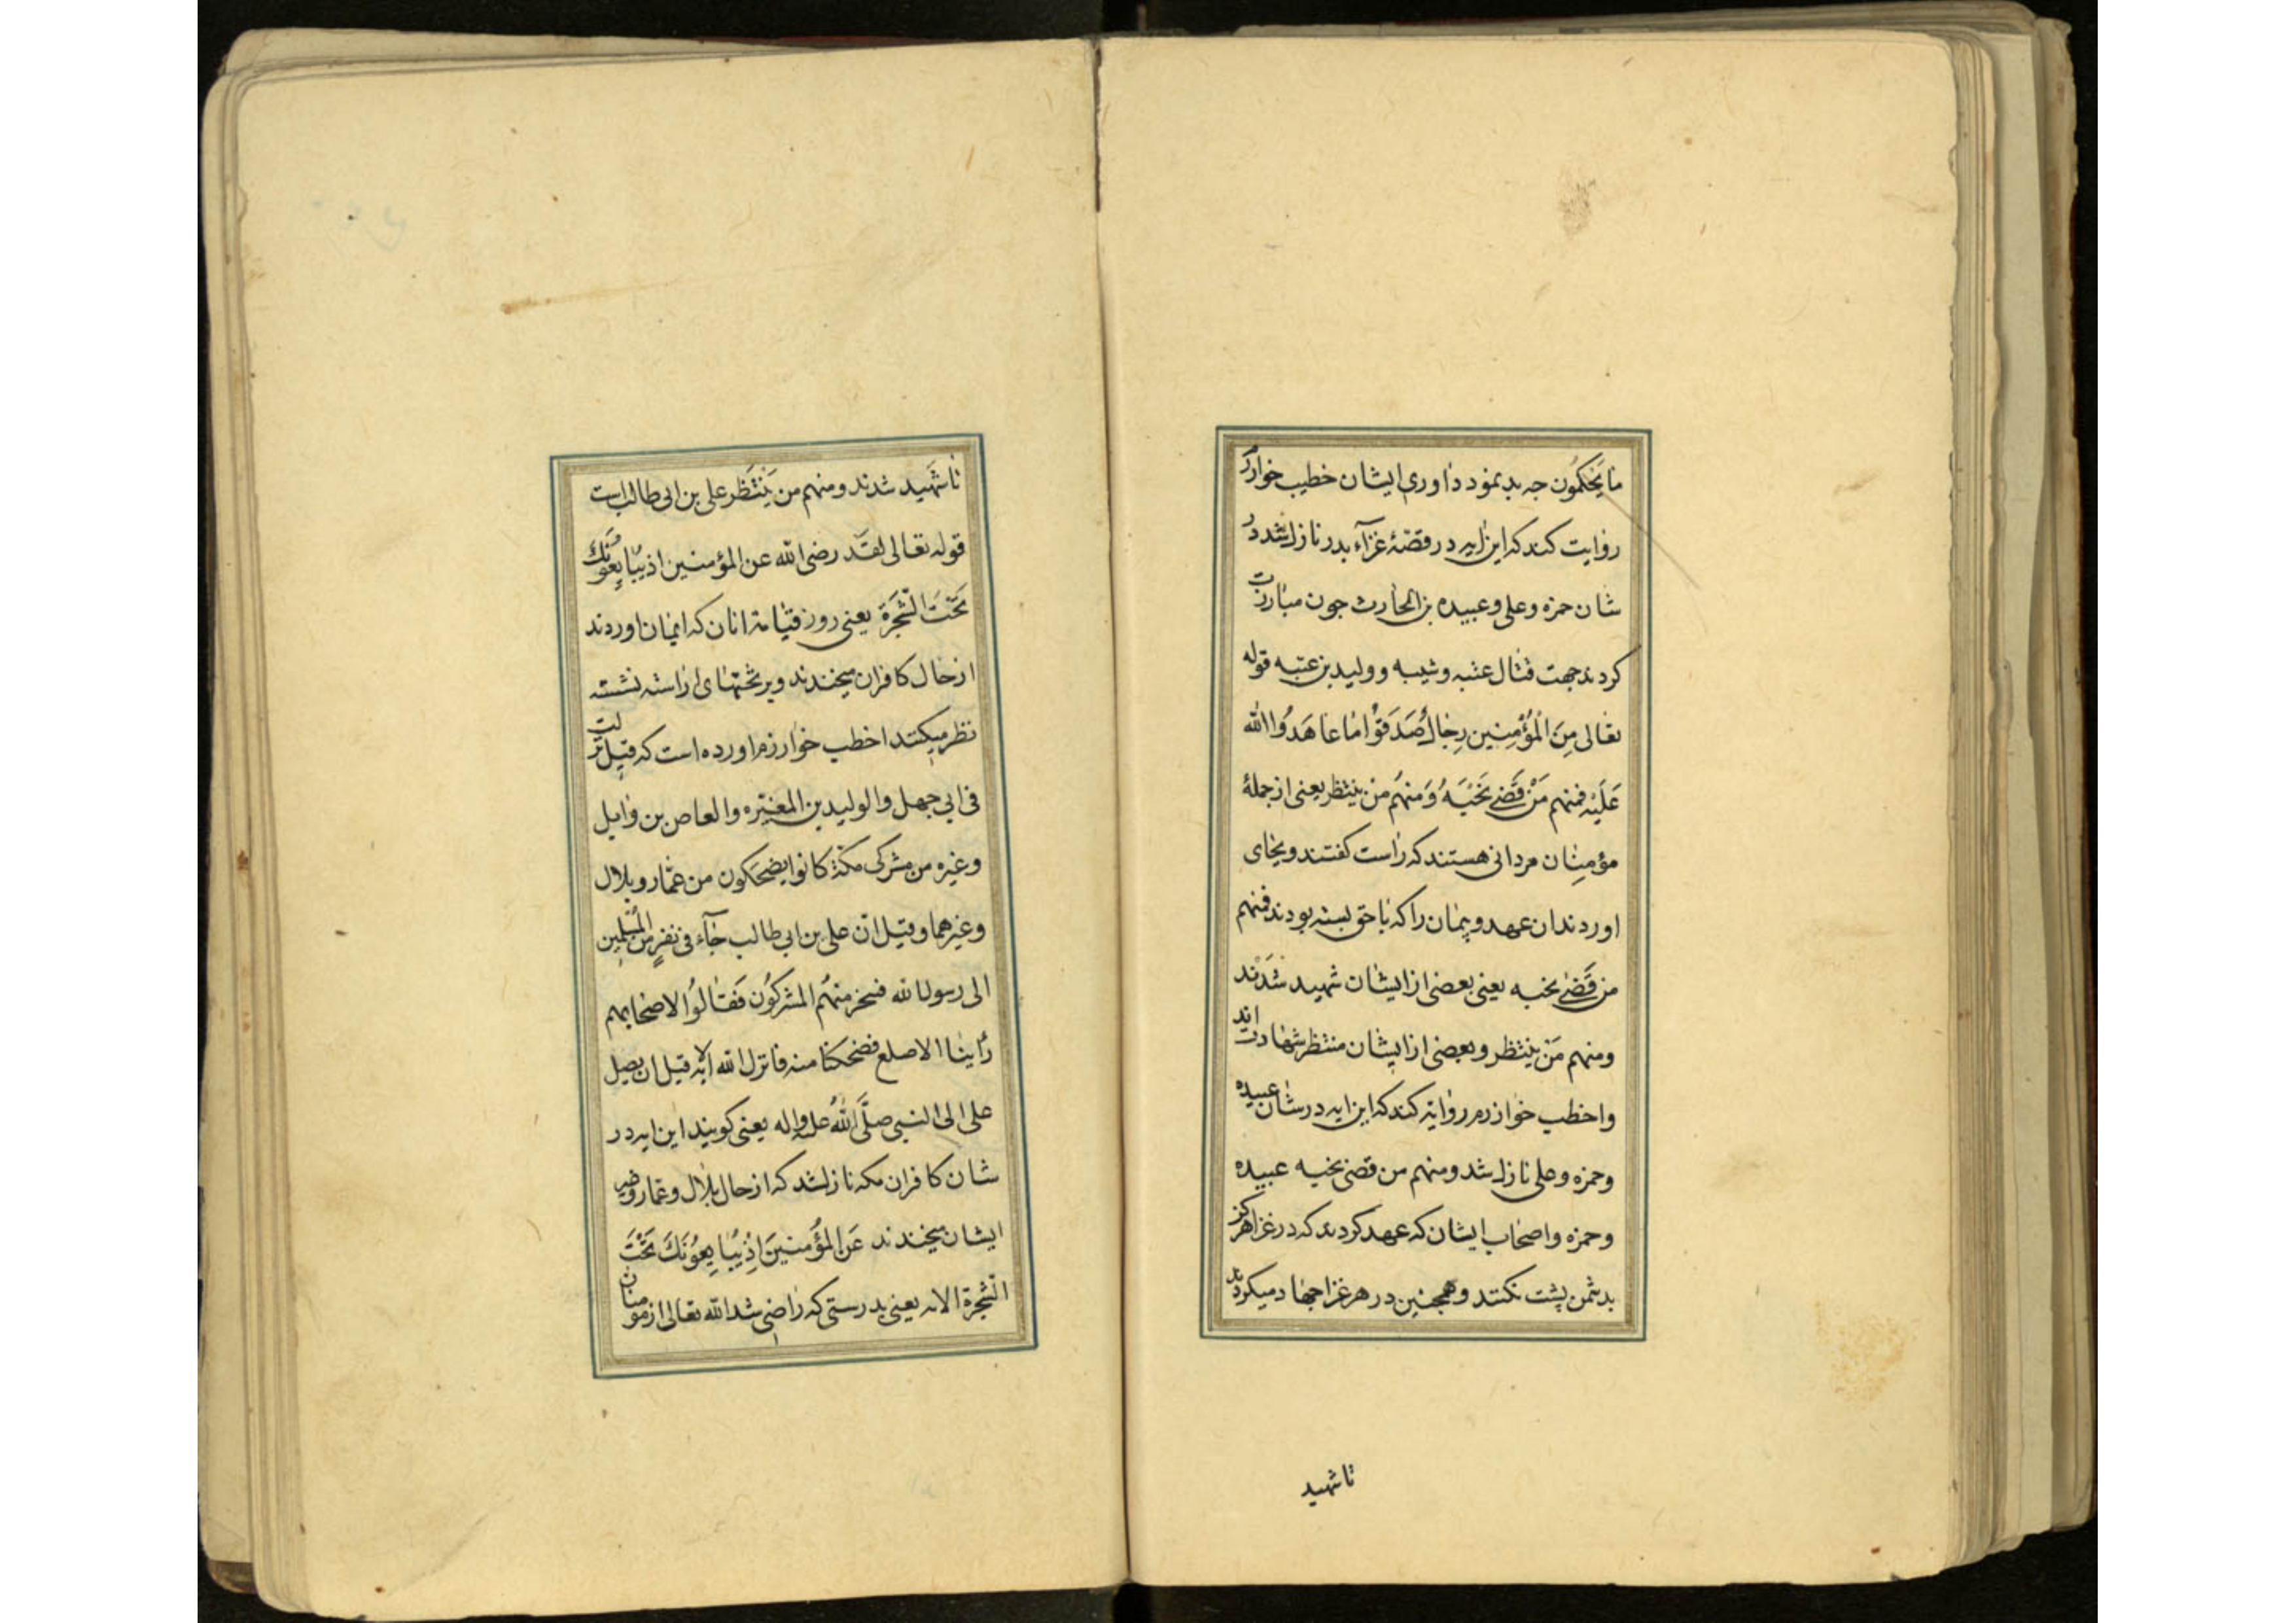 ما يَحْكُمُون جه بد بمود داوری ایشان خطیب خوارز
روایت کند که این ایه در قصّهٔ غزآء بدر نازل شد در
شان حمزه وعلی وعبیده بن الحارث جون مبارزت
کردند جهت قتال عتبه وشیبه وولید بن عتبه قوله
تعالى مِنَ الْمُؤْمِنِين رِجالٌ صَدَقَوْا ما عاهَدُوا الله
عَلَيْه فمنهم مَنْ قَضى نَحْبَهُ وَمنهُم من ينتظر یعنی از جملهٔ
مؤمنان مردانی هستند که راست کفتند وبجای
اوردند ان عهد وپیمان را که با حق بسته بودند فمنهم
من قَضى نحبه یعنی بعضی از ایشان شهید شدند
ومنهم مَن ينتظر وبعضی از ایشان منتظر شهادت اند
واخطب خوارزم روایة کند که این ایه در شان عبیده
وحمزه وعلی نازل شد ومنهم من قضى نحبه عبیده
وحمزه واصحاب ایشان که عهد کردند که در غزا هرکز
بدشمن پشت نکنند وهمجنین در هر غزا جهاد میکردند
تا شهید
تا شهید شدند ومنهم من يَنْتَظر علی بن ابی طالب است
قوله تعالى لقَد رضى الله عن المؤمنين اذ يُبايِعُونَكَ
تَحْتَ الشَّجَرَة یعنی روز قیامة انان که ایمان اوردند
از حال کافران میخندند وبر تختهای اراسته نشسته
نظر میکنند اخطب خوارزم اورده است که قيل نزلت
فى ابي جهل والوليد بن المغيره والعاص بن وايل
وغيره من مشركى مكّة كانوا يضحَكون من عمّار وبلال
وغيرهما وقيل انّ على بن ابى طالب جآء فى نفرٍ من المُسْلِمين
الى رسول الله فسخر منهُم المشركوُن فَقالُوا لاصحابهم
رأينا الاصلع فضحكنا منه فانزل الله الآيه قبل ان يصل
على الى النبى صلَّى اللهُ عليه واله یعنی کویند این ایه در
شان کافران مکه نازل شد که از حال بلال وعمار وغیر
ایشان میخندند عَن المؤُمنينَ اِذْ يُبايِعُونَكَ تَحْتَ
الشَّجَرَة الايه یعنی بدرستی که راضی شد الله تعالی از مومنان